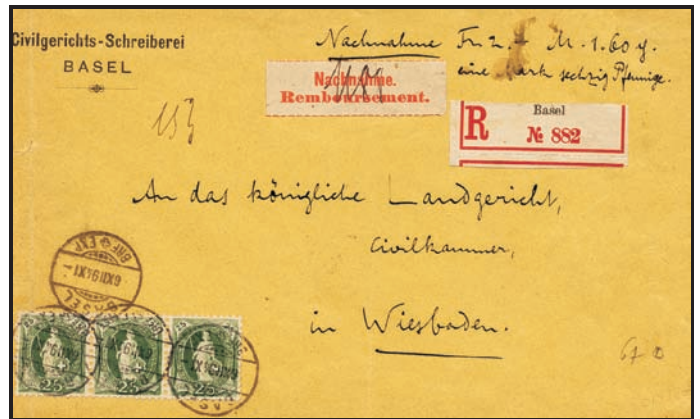 Civilgerichts-Schreiberei
BASEL
Nachnahme Fr. 2.- M. 1.60 y.
eine Mark sechzig Pfennige.
Nachnahme.
Remboursement.
Basel
R № 882
153
An das königliche Landgericht,
Civilkammer,
in Wiesbaden.
BRF EXP
6 XII 94 XI
BASEL
25 25 25